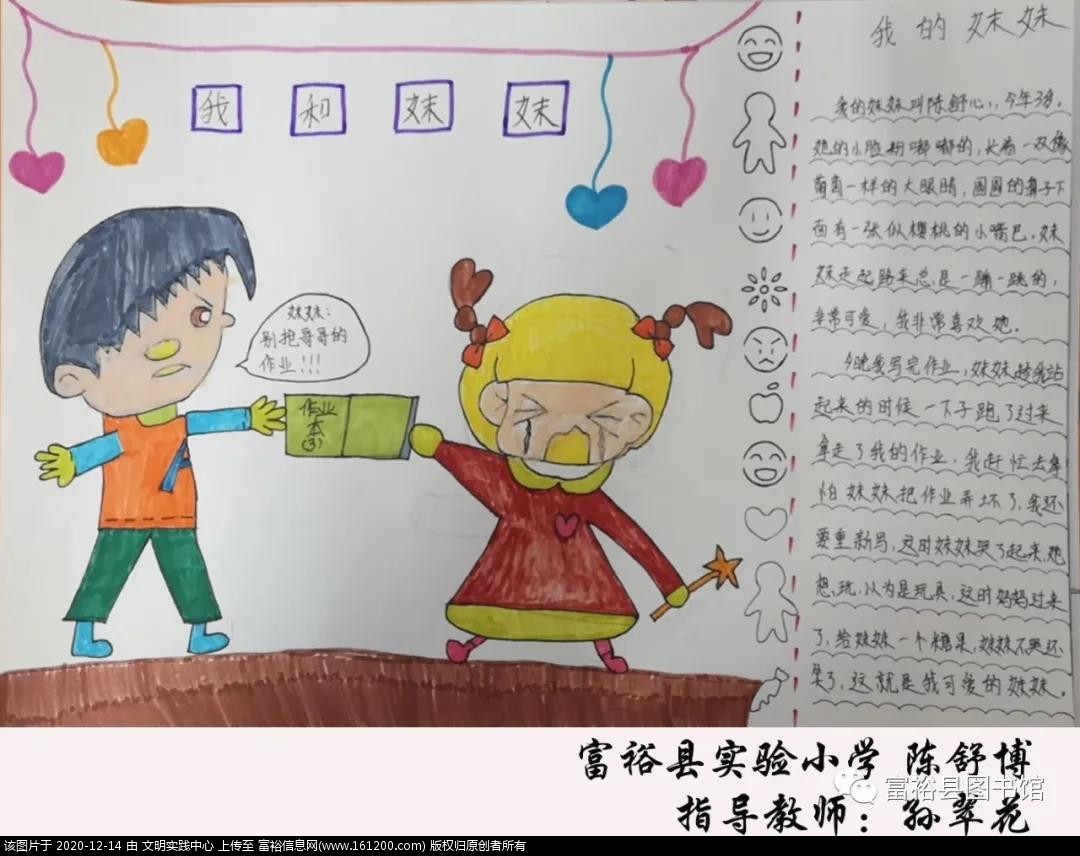 我和妹妹
妹妹:
别抱哥哥的
作业!!!
作业
本
(3)
我的妹妹
我的妹妹叫陈舒心,今年3岁。
她的小脸粉嘟嘟的,长着一双像
葡萄一样的大眼睛,圆圆的鼻子下
面有一张似樱桃的小嘴巴。妹
妹走起路来总是一蹦一跳的,
非常可爱,我非常喜欢她。
今晚我写完作业,妹妹趁我站
起来的时候一下子跑了过来
拿走了我的作业,我赶忙去拿
怕妹妹把作业弄坏了,我还
要重新写,这时妹妹哭了起来,她
想玩,以为是玩具,这时妈妈过来
了,给妹妹一个糖果,妹妹不哭还
笑了,这就是我可爱的妹妹。
富裕县实验小学 陈舒博
指导教师:孙翠花
富裕县图书馆
该图片于 2020-12-14 由 文明实践中心 上传至 富裕信息网(www.161200.com) 版权归原创者所有